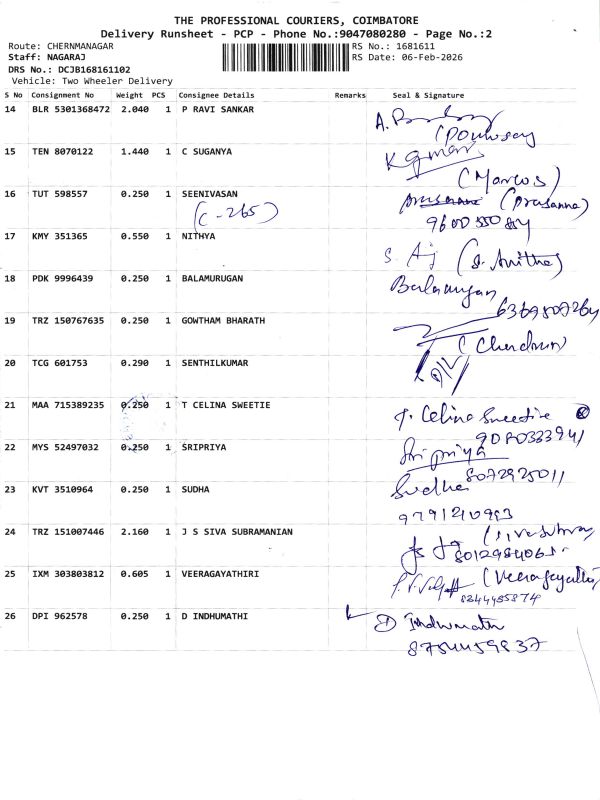 THE PROFESSIONAL COURIERS, COIMBATORE
Delivery Runsheet - PCP - Phone No.:9047080280 - Page No.:2
Route: CHERNMANAGAR
RS No.: 1681611
Staff: NAGARAJ
RS Date: 06-Feb-2026
DRS No.: DCJB168161102
Vehicle: Two Wheeler Delivery
S No Consignment No Weight PCS Consignee Details Remarks Seal & Signature
14 BLR 5301368472 2.040 1 P RAVI SANKAR
15 TEN 8070122 1.440 1 C SUGANYA
(Marcos)
16 TUT 598557 0.250 1 SEENIVASAN
(Prasanna)
(C-265)
17 KMY 351365 0.550 1 NITHYA
18 PDK 9996439 0.250 1 BALAMURUGAN
Balamurugan
19 TRZ 150767635 0.250 1 GOWTHAM BHARATH
20 TCG 601753 0.290 1 SENTHILKUMAR
21 MAA 715389235 0.250 1 T CELINA SWEETIE
T. Celina Sweetie
22 MYS 52497032 0.250 1 SRIPRIYA
Sripriya
8072925011
23 KVT 3510964 0.250 1 SUDHA
Sudha
9791210993
24 TRZ 151007446 2.160 1 J S SIVA SUBRAMANIAN
25 IXM 303803812 0.605 1 VEERAGAYATHIRI
26 DPI 962578 0.250 1 D INDHUMATHI
D Indhumathi
8754459837